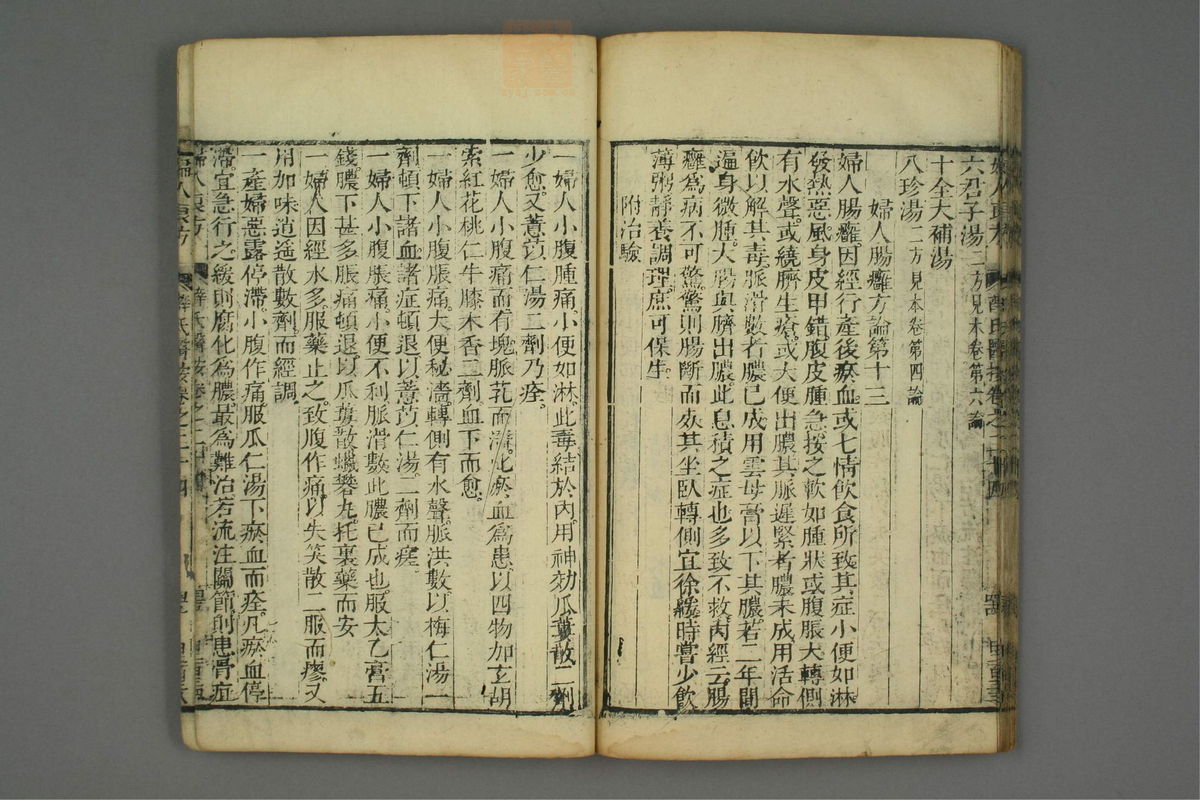 六君子湯二方見本卷第六論
十全大補湯
八珍湯二方見本卷第四論
婦人腸癰方論第十三
婦人腸癰因經行產後瘀血或七情飲食所致其症小便如淋
發熱惡風身皮甲錯腹皮腫急按之軟如腫狀或腹脹大轉側
有水聲或繞臍生瘡或大便出膿其脈遲緊者膿未成用活命
飲以解其毒脈滑數者膿已成用雲母膏以下其膿若二年間
遍身微腫大腸與臍出膿此息積之症也多致不救內經云腸
癰爲病不可驚驚則腸斷而死其坐臥轉側宜徐緩時嘗少飲
薄粥靜養調理庶可保生
附治驗
一婦人小腹腫痛小便如淋此毒結於內用神効瓜蔞散二劑
少愈又薏苡仁湯二劑乃痊
一婦人小腹痛而有塊脈芤而濇此瘀血爲患以四物加玄胡
索紅花桃仁牛膝木香二劑血下而愈
一婦人小腹脹痛大便秘濇轉側有水聲脈洪數以梅仁湯一
劑頓下諸血諸症頓退以薏苡仁湯二劑而瘥
一婦人小腹脹痛小便不利脈滑數此膿已成也服太乙膏五
錢膿下甚多脹痛頓退以瓜蔞散蠟礬丸托裏藥而安
一婦人因經水多服藥止之致腹作痛以失笑散二服而瘳又
用加味逍遙散數劑而經調
一產婦惡露停滯小腹作痛服瓜仁湯下瘀血而痊凡瘀血停
滯宜急行之緩則腐化爲膿最爲難治若流注關節則患骨疽
婦人良方 薛氏醫按卷之二十四